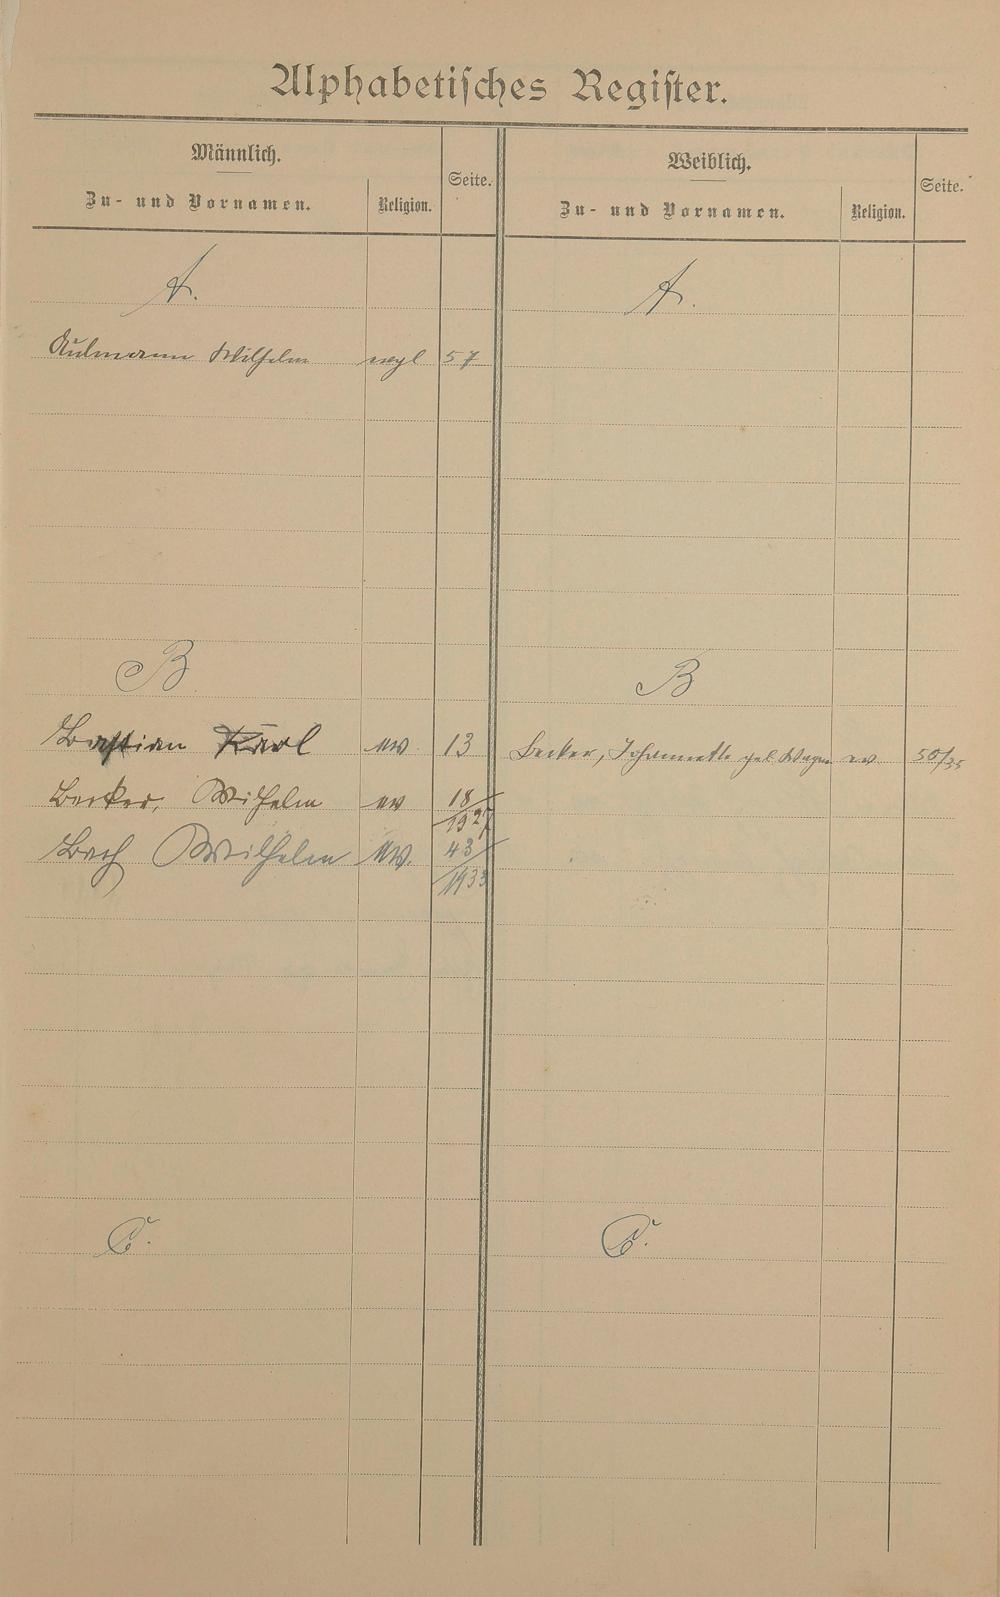 Alphabetisches Register.
Männlich. Seite. Weiblich. Seite.
Zu- und Vornamen. Religion. Zu- und Vornamen. Religion.
A. A.
Aulmann Wilhelm 57
B. B
Bastian Karl ev. 13 Becker, Johannette geb. Wagner ev 50/35
Becker, Wilhelm ev 18/1927
Bach Wilhelm ev. 43/1933
C. C.